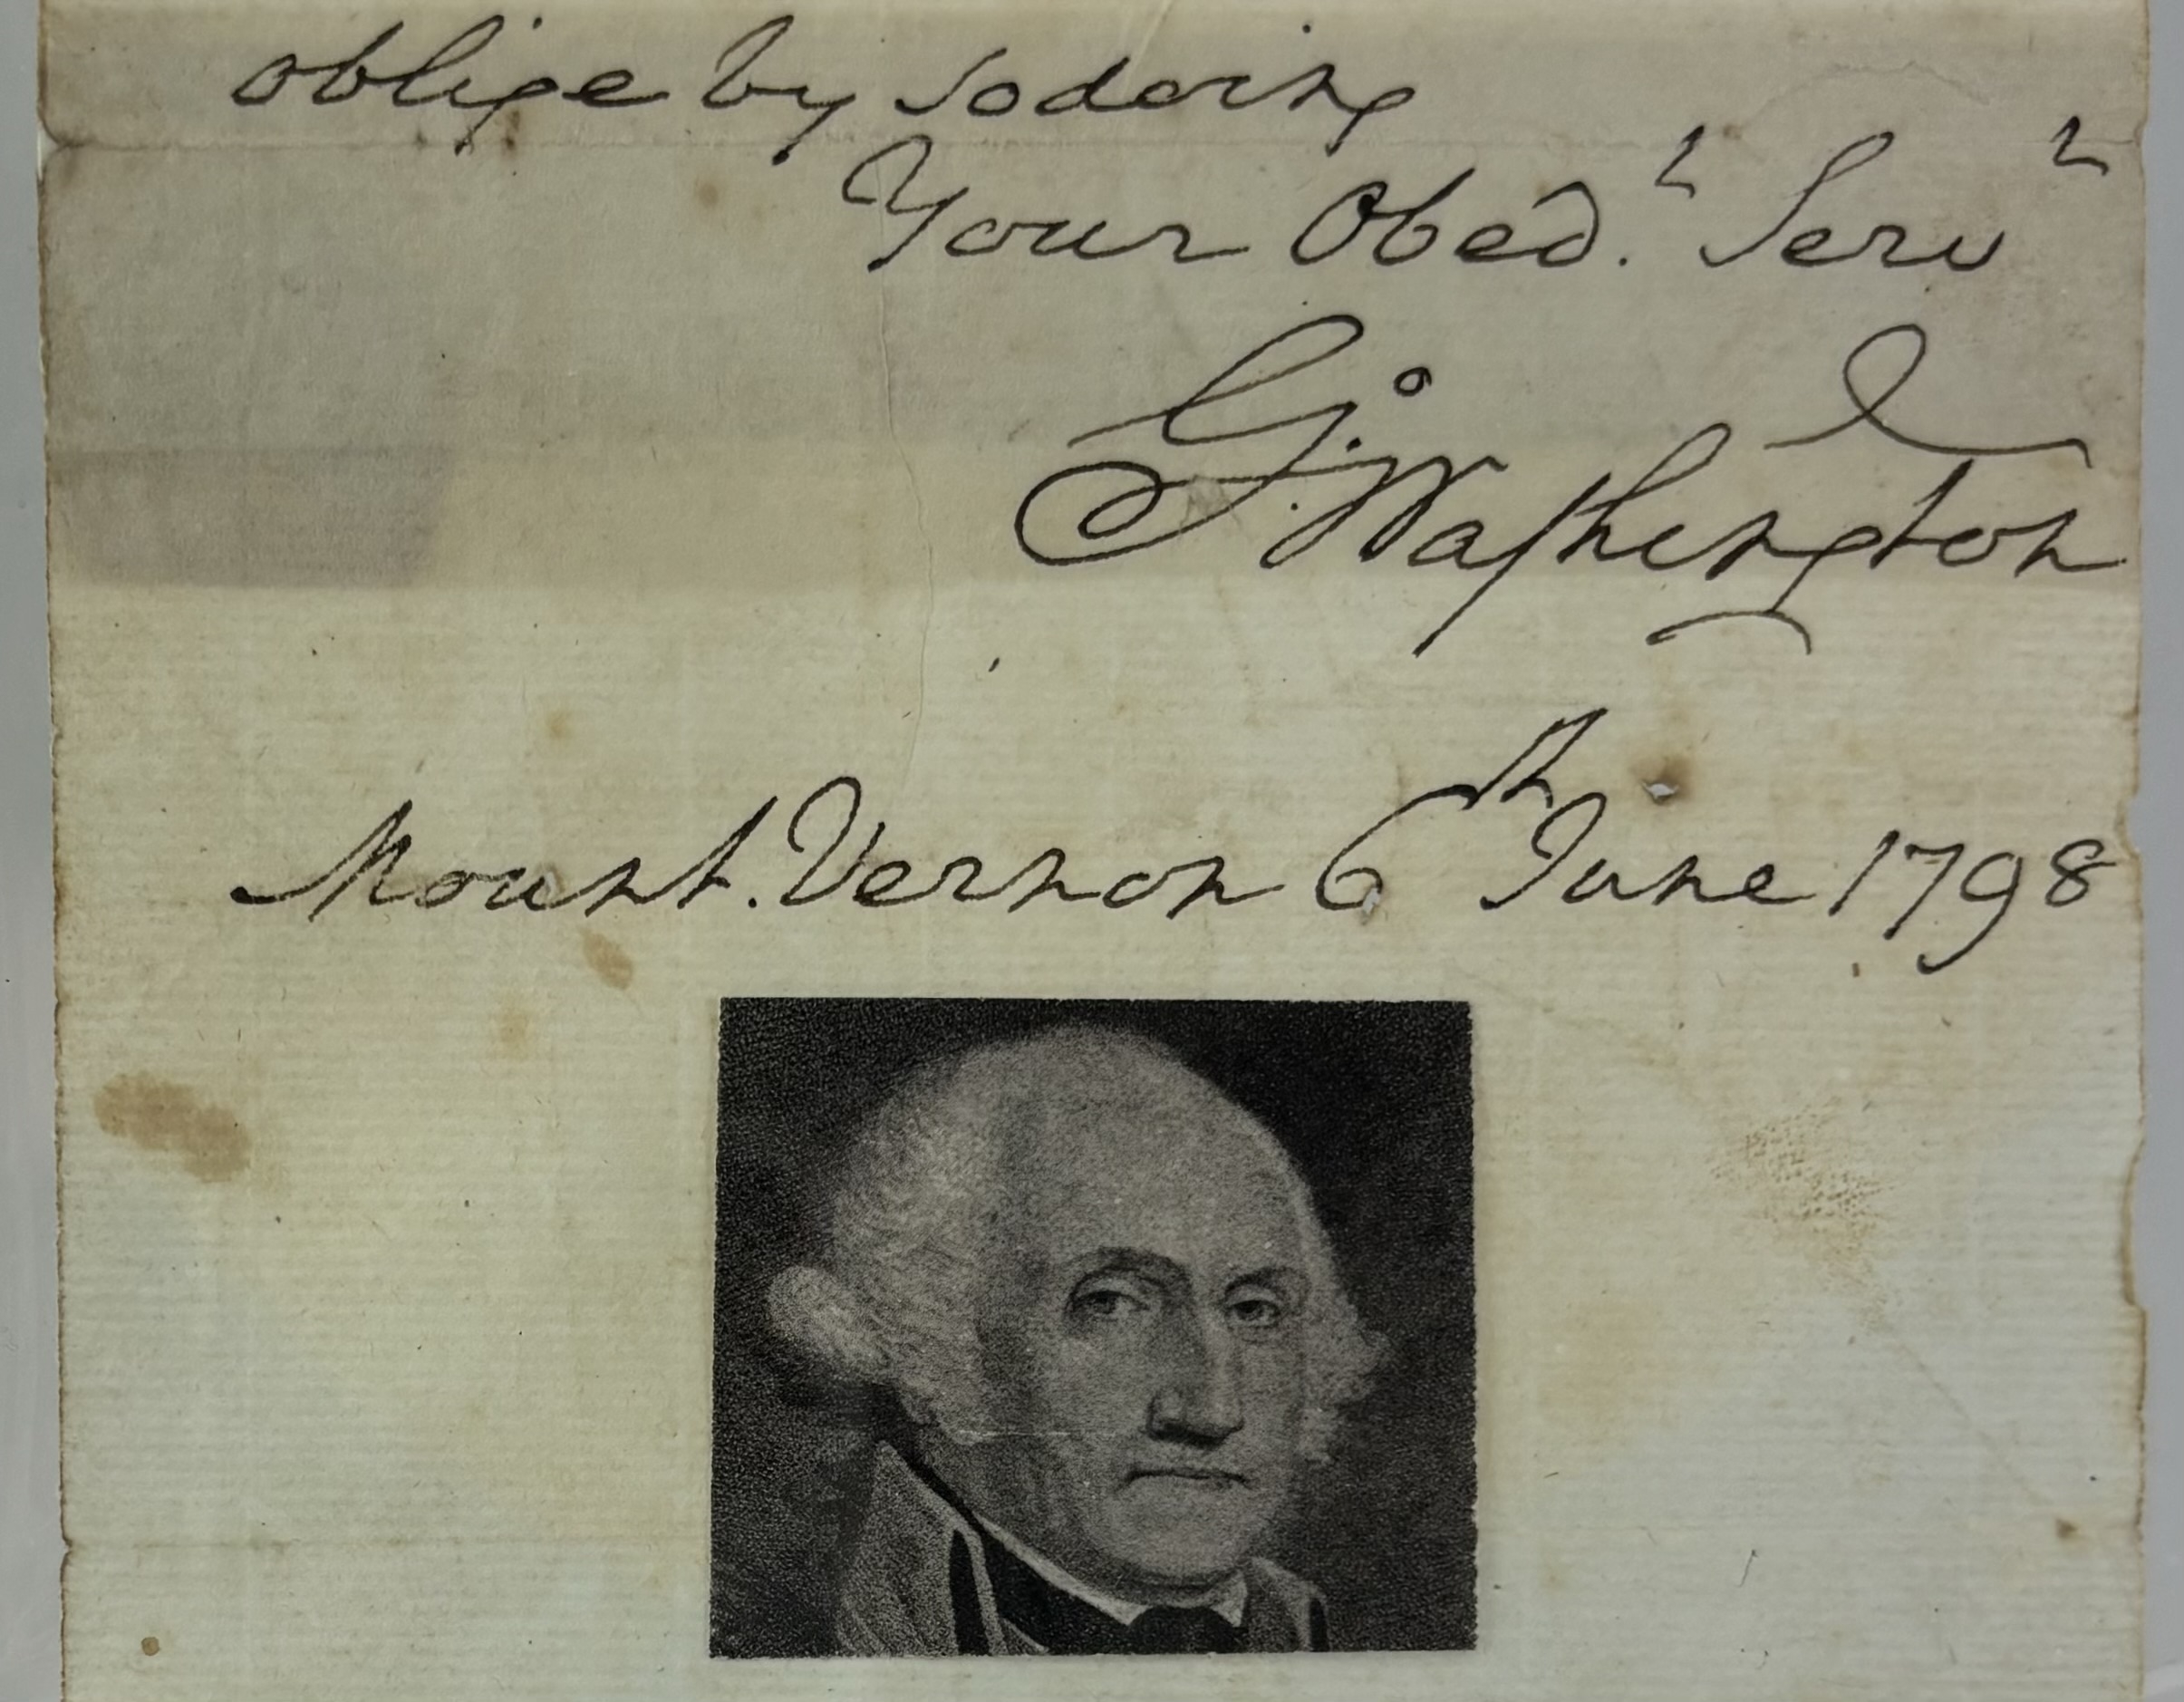 oblige by so doing
Your Obed.t Servt
Go: Washington
Mount. Vernon 6th June 1798